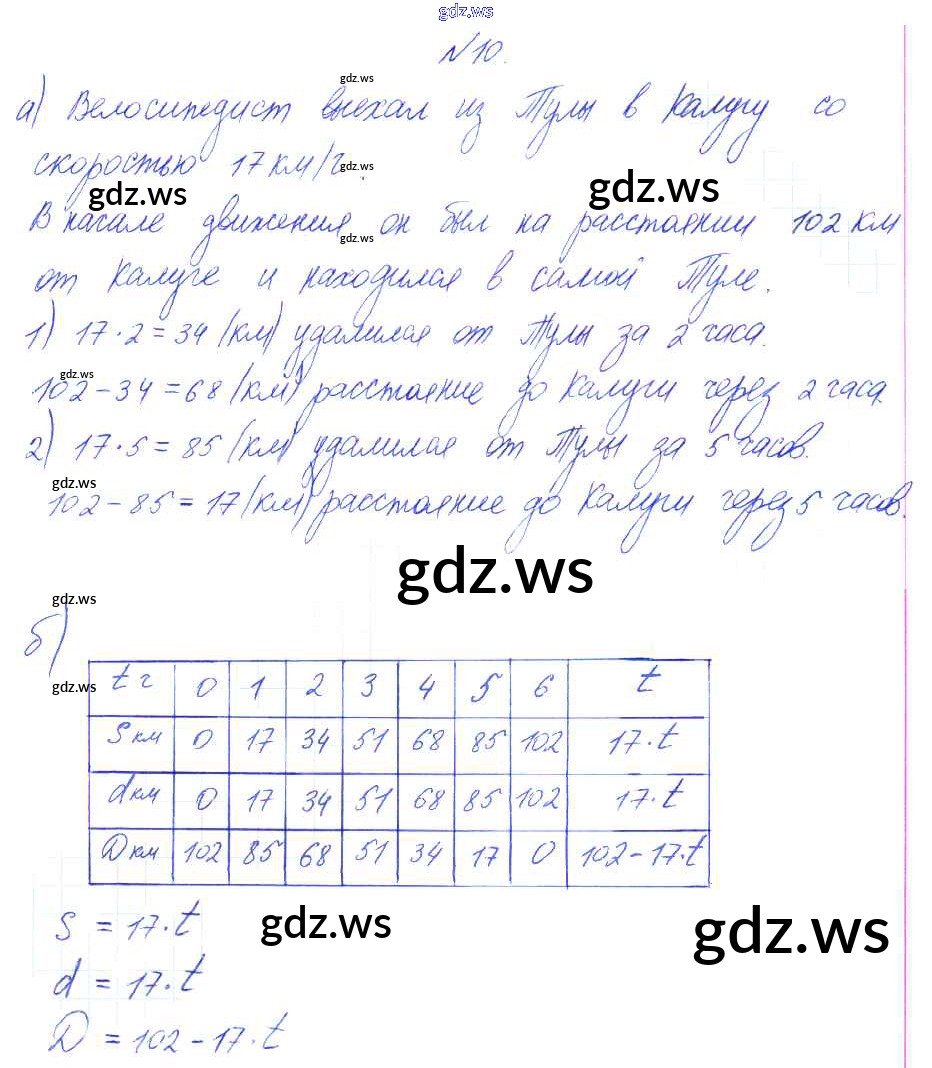 gdz.ws
№10.
а) Велосипедист выехал из Тулы в Калугу со
gdz.ws
скоростью 17 км/ч.
gdz.ws
gdz.ws
gdz.ws
В начале движения он был на расстоянии 102 км
gdz.ws
от Калуге и находился в самой Туле.
1) 17·2=34 (км) удалился от Тулы за 2 часа.
gdz.ws
102-34=68 (км) расстояние до Калуги через 2 часа.
2) 17·5=85 (км) удалился от Тулы за 5 часов.
gdz.ws
102-85=17 (км) расстояние до Калуги через 5 часов.
gdz.ws
gdz.ws
б)
gdz.ws
t ч 0 1 2 3 4 5 6 t
S км 0 17 34 51 68 85 102 17·t
d км 0 17 34 51 68 85 102 17·t
D км 102 85 68 51 34 17 0 102-17·t
S = 17·t
gdz.ws
gdz.ws
d = 17·t
D = 102-17·t